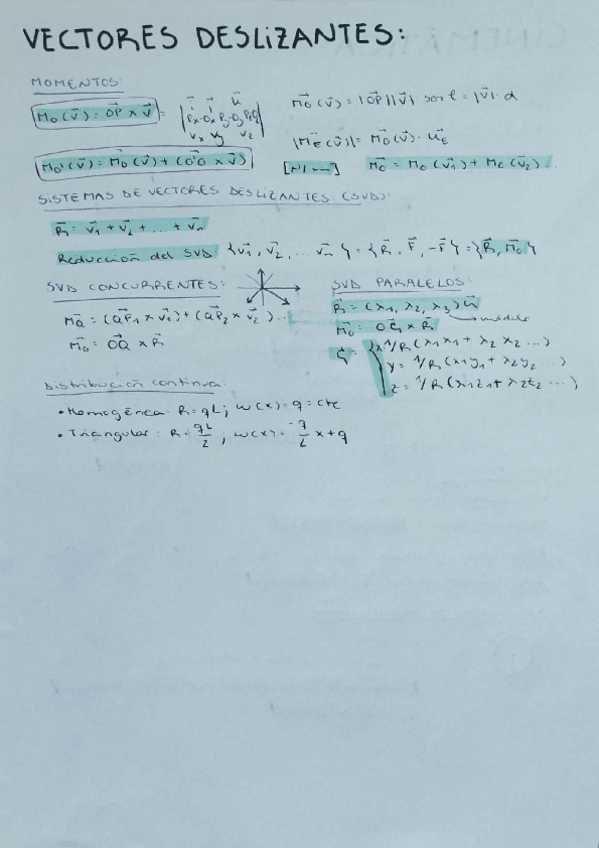 VECTORES DESLIZANTES:
MOMENTOS:
M⃗o(v⃗) = O⃗P x v⃗ = | i⃗ j⃗ k⃗ |
Px-Ox Py-Oy Pz-Oz
vx vy vz
M⃗o(v⃗) = |O⃗P||v⃗| = |v⃗|·d
|M⃗E(v⃗)| = M⃗o(v⃗)· u⃗E
M⃗o'(v⃗) = M⃗o(v⃗) + (O⃗'O x v⃗)
M⃗o = Mo(v⃗1) + Mc(v⃗2)...
SISTEMAS DE VECTORES DESLIZANTES (SVD):
R⃗ = v⃗1 + v⃗2 + ... + v⃗n
Reducción del SVD: {v⃗1, v⃗2, ... v⃗n} = {R⃗, F⃗, -F⃗} = {R⃗, M⃗o}
SVD CONCURRENTES:
M⃗Q = (Q⃗P1 x v⃗1) + (Q⃗P2 x v⃗2)...
M⃗o = O⃗Q x R⃗
SVD PARALELOS:
R⃗ = (λ1, λ2, λ3) u⃗
módulo
M⃗o = O⃗G x R⃗
G = { x = 1/R (λ1x1 + λ2x2 ...)
y = 1/R (λ1y1 + λ2y2 ...)
z = 1/R (λ1z1 + λ2z2 ...)
Distribución continua:
• Homogénea: R = qL ; w(x) = q = cte
• Triangular: R = qL/2 ; w(x) = -q/L x + q